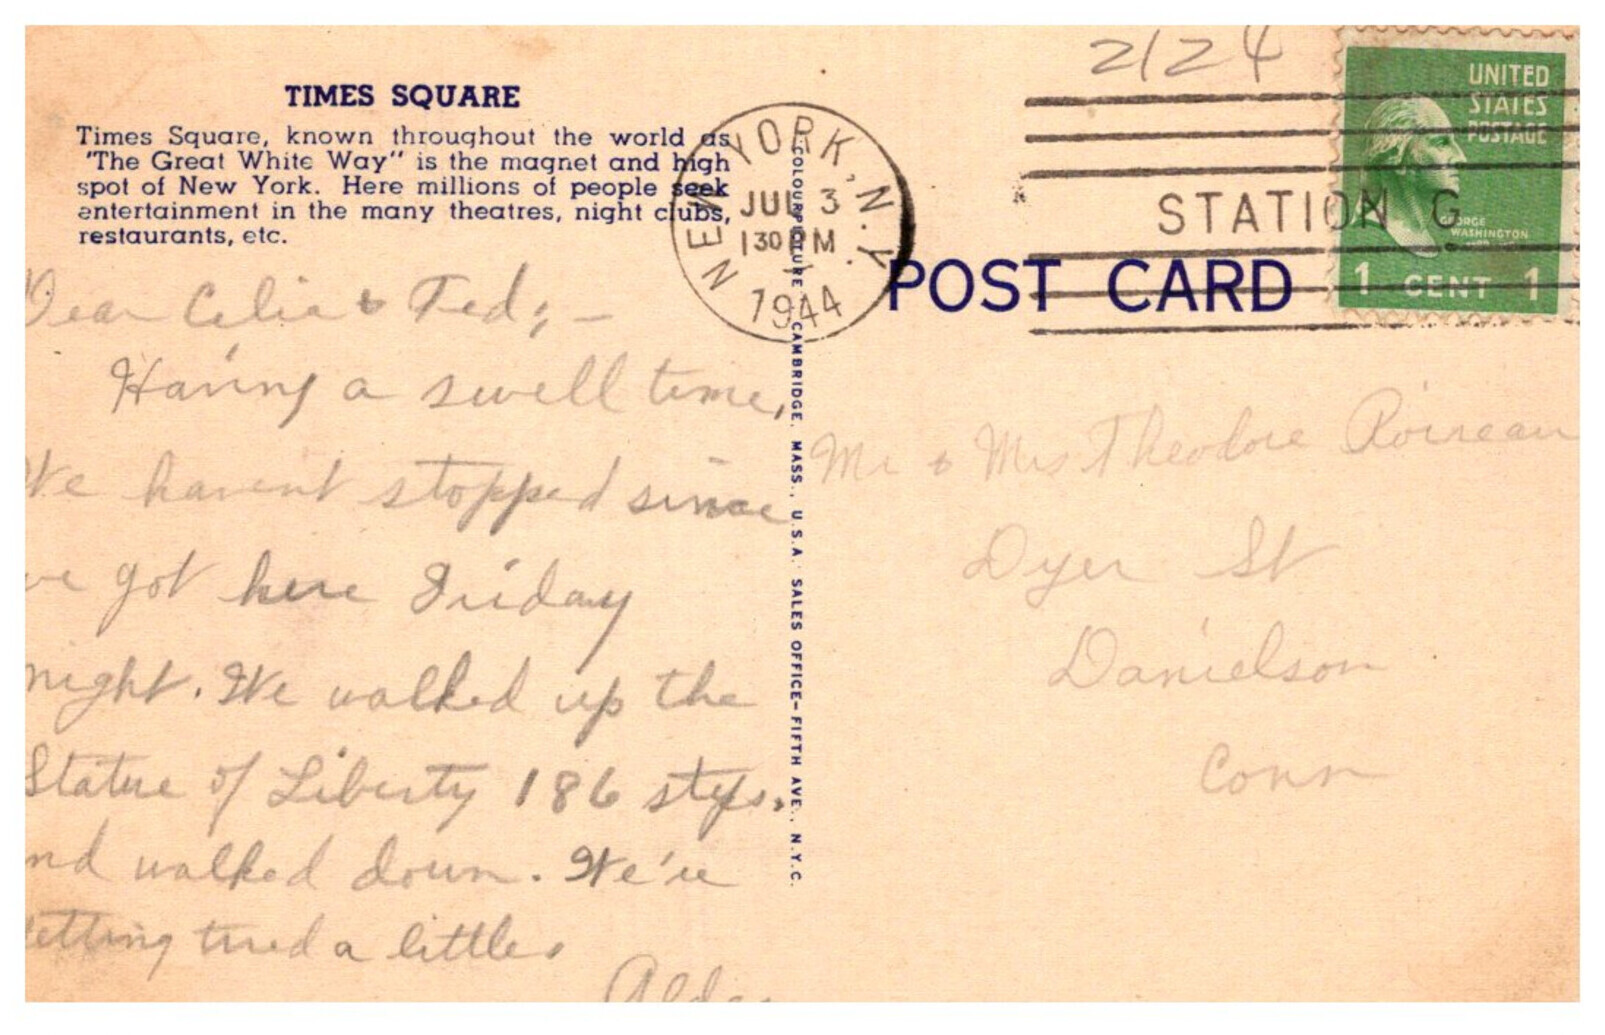 TIMES SQUARE
Times Square, known throughout the world as
"The Great White Way" is the magnet and high
spot of New York. Here millions of people seek
entertainment in the many theatres, night clubs,
restaurants, etc.
Dear Celia & Ted; —
Having a swell time,
We havent stopped since
we got here Friday
night. We walked up the
Statue of Liberty 186 steps.
nd walked down. We're
etting tired a little.
COLOURPICTURE CAMBRIDGE, MASS., U.S.A. SALES OFFICE- FIFTH AVE., N.Y.C.
2124
NEW YORK, N.Y.
JUL 3
1 30 PM
1944
STATION G
UNITED
STATES
POSTAGE
GEORGE
WASHINGTON
1 CENT 1
POST CARD
Mr & Mrs Theodore
Dyer St
Danielson
Conn